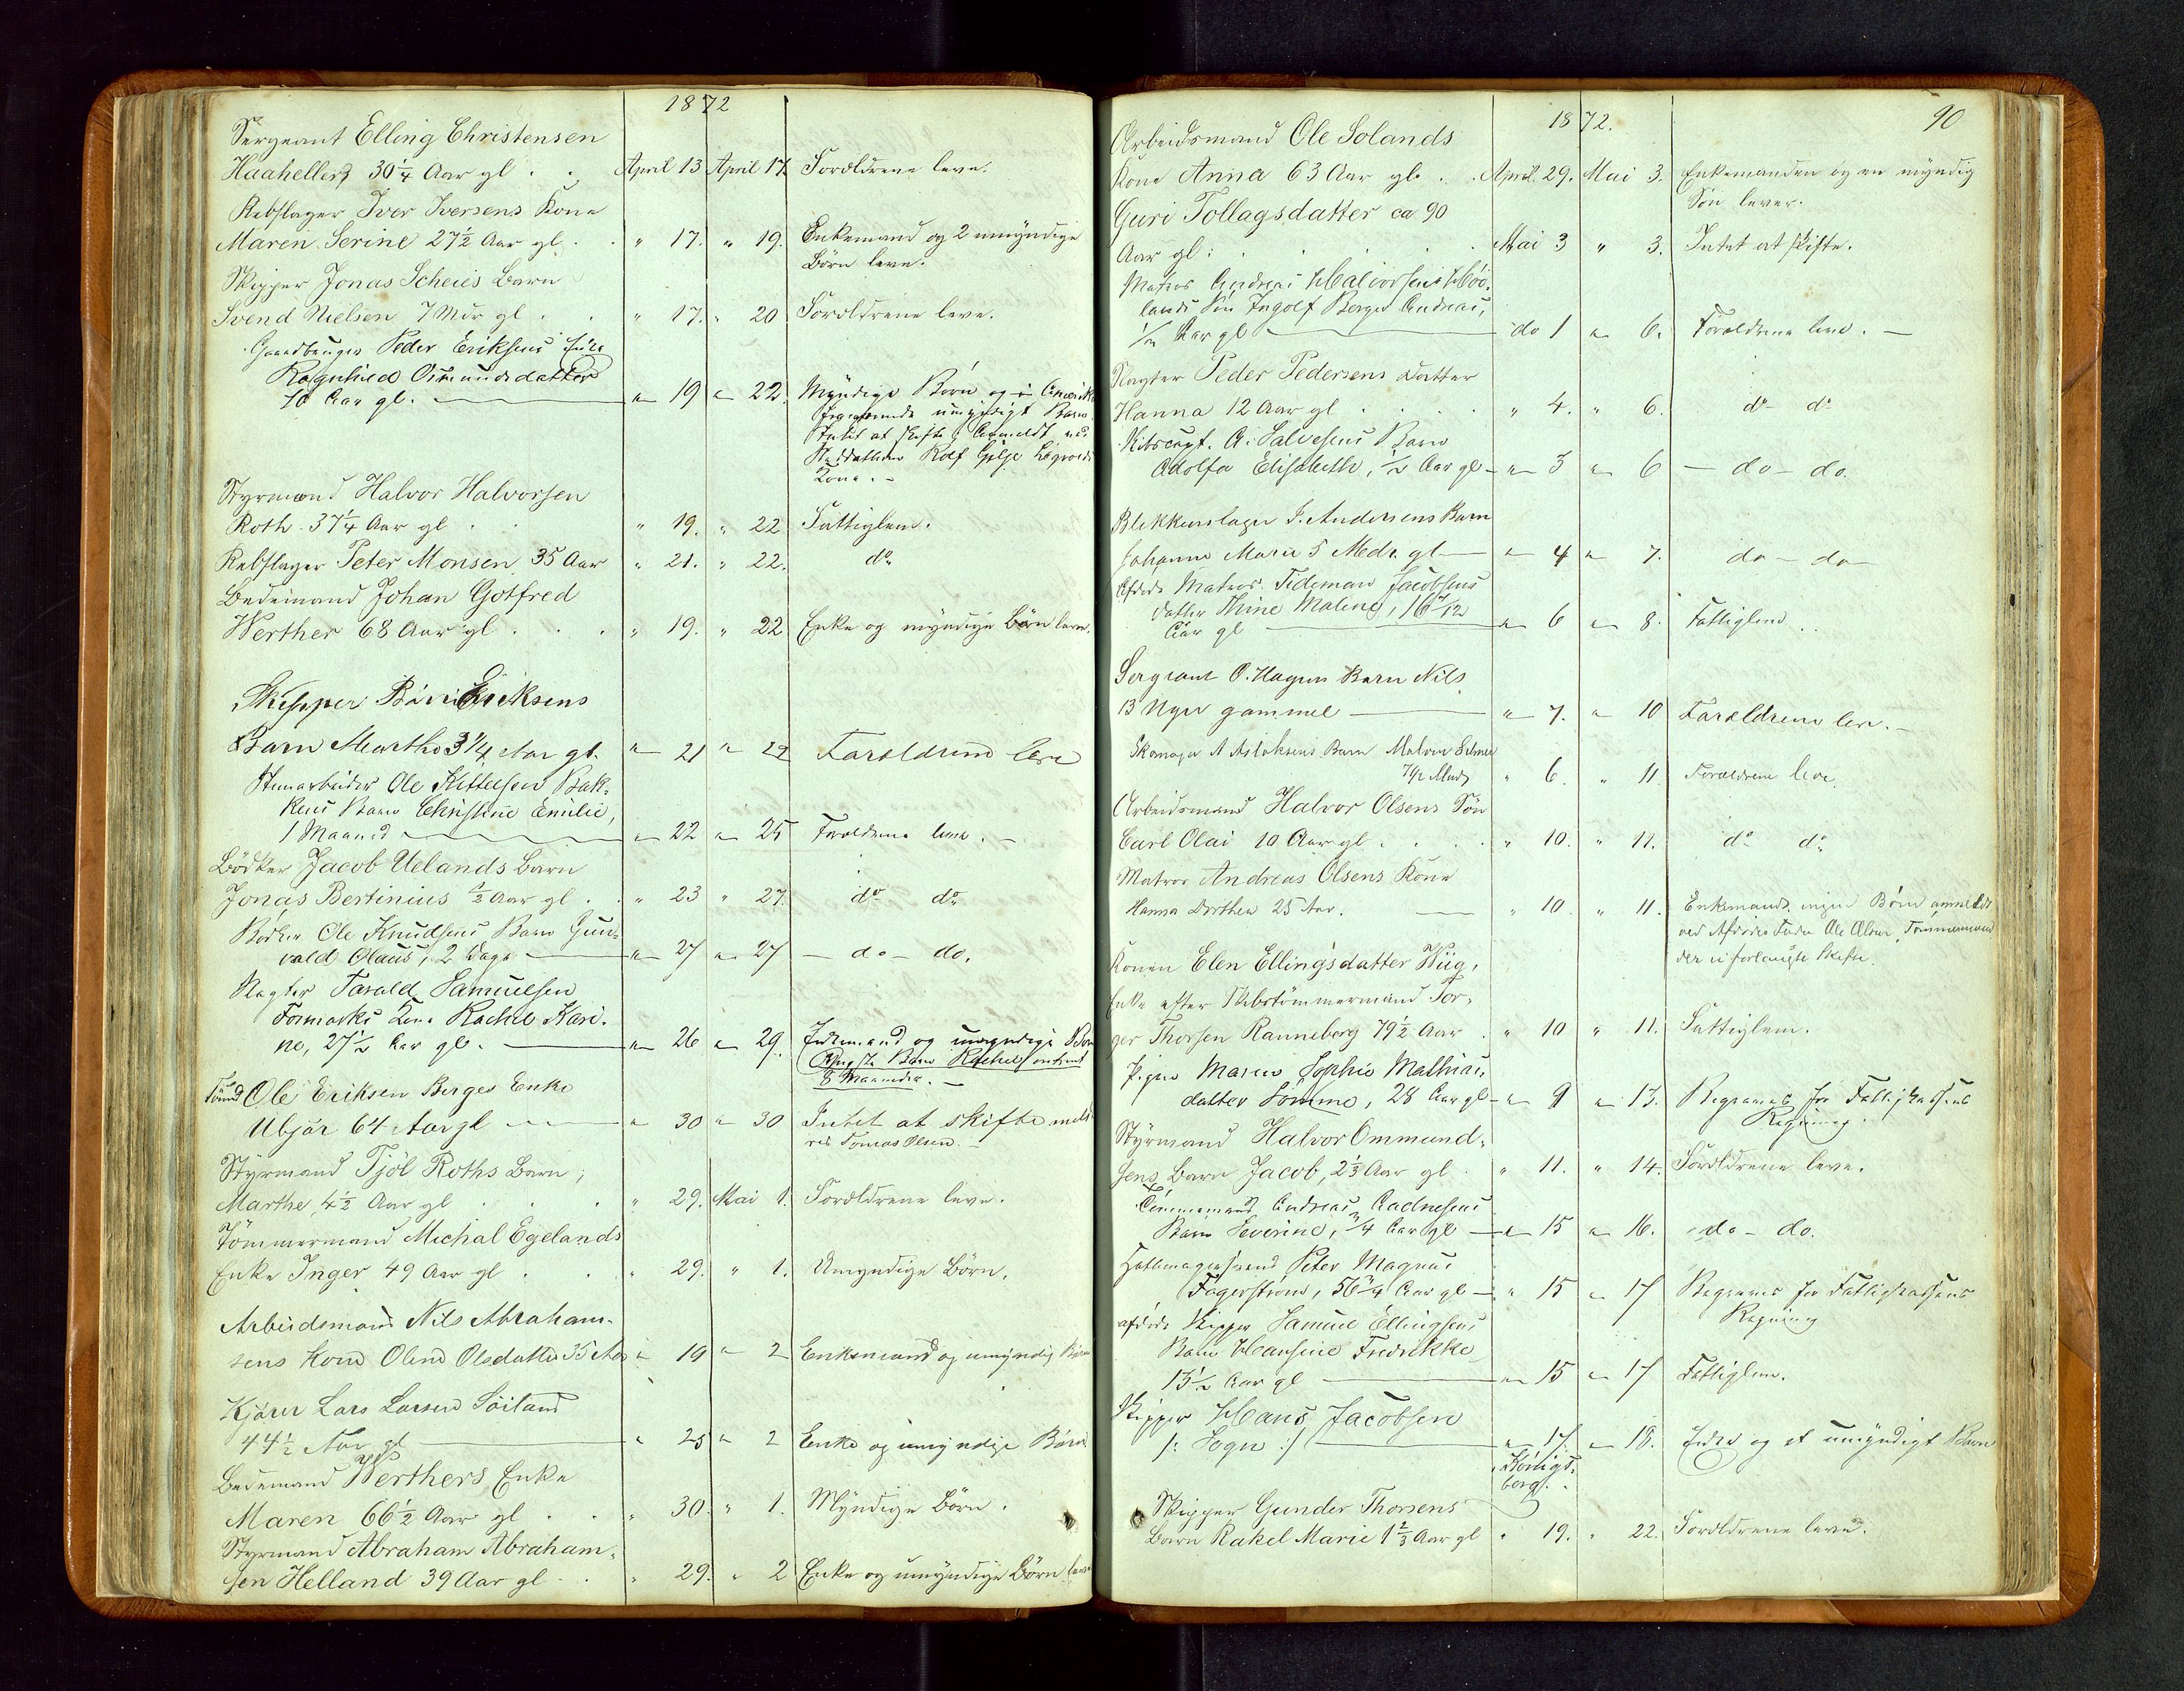 1872
Sergeant Elling Christensen
Haahellers 30 1/4 Aar gl . . April 13 April 17. Forældrene leve.
Rebslager Iver Iversens Kone
Maren Serine 27 1/2 Aar gl. . " 17. " 19. Enkemand og 2 umyndige
Børn leve.
Skipper Jonas Scheies Barn
Svend Nielsen 7 Mdr gl . . " 17. " 20 Forældrene leve.
Gaardbruger Peder Eriksens Enke
Ragnhild Osmundsdatter
70 Aar gl. — " 19 " 22. Myndige Børn og i Amerika
fraværende umyndigt Barn.
Intet at skifte, Anmeldt ved
Rolf Gilje
Kone. -
Styrmand Halvor Halvorsen
Roth 37 1/4 Aar gl . . " 19. " 22. Fattiglem.
Rebslager Peter Monsen 35 Aar " 21. " 22. do
Bedemand Johan Gotfred
Werther 68 Aar gl . . . " 19. " 22 Enke og myndige Børn leve.
Skipper Eriksens
Barn Martha 3 1/4 Aar gl. " 21 " 22 Forældrene leve
Stenarbeider Ole Kittelsen Bak-
kens Barn Christine Emilie,
1 Maaned — " 22 " 25 Forældrene leve. -
Bødker Jacob Uelands Barn
Jonas Bertinius 1/2 Aar gl . . " 23 " 27. do do
Bødker Ole Knudsens Barn Gun-
vald Olaus, 2 Dage — " 27 " 27 — do — do.
Slagter Tarald Samuelsen
Formorks Kone Rachel Kari-
ne, 27 1/2 Aar gl. — " 26 " 29. Enkemand og umyndige Børn
Yngste Barn Rachel omtrent
8 Maaneder. -
Tømmd Ole Eriksen Berges Enke
Ubjør 64 Aar gl — " 30 " 30 Intet at skifte meldt
ved Tomas Olsen. -
Styrmand Tjøl Roths Barn,
Marthe 4 1/2 Aar gl . . . " 29. Mai 1. Forældrene leve.
Tömmermand Michal Egelands
Enke Inger 49 Aar gl . . " 29. " 1. Umyndige Børn.
Arbeidsmand Nils Abraham-
sens Kone Oline Olsdatter 35 Aar " 19 " 2 Enkemand og umyndig Børn
Kjører Lars Larsen Söiland
44 1/2 Aar gl — " 25 " 2 Enke og umyndige Børn
Bedemand Werthers Enke
Maren 66 1/2 Aar gl . . " 30. " 1. Myndige Børn.
Styrmand Abraham Abraham-
sen Helland 39 Aar gl . . " 29. " 2 Enke og umyndige Børn leve
1872. 90
Arbeidsmand Ole Solands
Kone Anna 63 Aar gl. . . April 29. Mai 3. Enkemanden og en myndig
Søn lever.
Guri Tollagsdatter ca 90
Aar gl: . . . Mai 3 " 3. Intet at skifte.
Matros Andreas Halvorsens Høi-
lands Søn Ingolf Berges Andreas,
Aar gl — do 1 " 6. Forældrene leve. —
Slagter Peder Pedersens Datter
Hanna 12 Aar gl . . . . " 4. " 6. do do
Skibscapt. A. Salvesens Barn
Adolfa Elisabeth, 1/2 Aar gl — " 3 " 6 — do — do.
Blikkenslager J. Andersens Barn
Johanne Marie 5 Mdr. gl — " 4 " 7. do — do —
Afdøde Matros Tideman Jacobsens
Datter Thine Malene, 16 7/12
Aar gl — " 6 " 8. Fattiglem.
Sergeant O. Hagens Barn Nils
13 Uger gammel — " 7. " 10 Forældrene leve. -
Skomager A Aslaksens Barn Malvin
7 1/2 Mnd " 6. " 11 Forældrene leve.
Arbeidsmand Halvor Olsens Søn
Carl Olai 10 Aar gl . . . . " 10. " 11. do do
Matros Andreas Olsens Kone
Hanna Dorthea 25 Aar. — " 10. " 11. Enkemand, ingen Børn anmeldt
ved Afdødes Fader Ole Olsen, Tømmermand
der ei forlangte Skifte.
Konen Elen Ellingsdatter Wiig,
Enke efter Skibstömmermand Tor-
ger Thorsen Ranneberg 79 1/2 Aar . " 10 " 11. Fattiglem.
Pigen Maren Sophie Mathias-
datter Sömme, 28 Aar gl — " 9 " 13. Begraves for Fattigkassens
Regning.
Styrmand Halvor Ommund-
sens Barn Jacob, 2 1/3 Aar gl . " 11. " 14. Forældrene leve.
Tömmermand Andreas Aadnesens
Barn Severine, 3/4 Aar gl — " 15 " 16. do — do.
Hattemagersvend Peter Magnus
Fagerström, 56 3/4 Aar gl — " 15 " 17 Begraves for Fattigkassens
Regning
afdøde Skipper Samuel Ellingsens
Barn Hansine Fredrikke
15 1/2 Aar gl — " 15 " 17 Fattiglem.
Skipper Hans Jacobsen
/: Sogn :/ — " 17. " 18. Enke og et umyndigt Barn
Königs-
berg.
Skipper Gunder Thorsens
Barn Rakel Marie 1 2/3 Aar gl " 19. " 22. Forældrene leve.